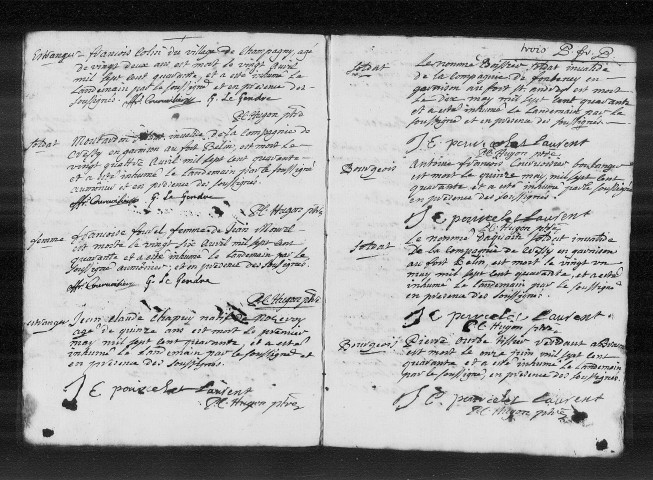 Estranger françois Colin du village de Champagny agé
de vingt deux ans est mort le vingt avril
mil sept cent quarante, et a esté inhumé le
Landemain par le soussigné et en presence des
soussignés.
G. Le Gendre
P.C. Hugon ptre
soldat invalide de la compagnie de
en garnison au fort Belin, est mort le
vingt quatre avril mil sept cent quarante
et a esté inhumé le landemain par le soussigné
aumonier et en presence des soussignés.
G. Le Gendre
P.C. Hugon ptre
femme françoise femme de Jean
est morte le vingt six avril mil sept cent
quarante et a esté inhumée le landemain par le
soussigné aumonier, et en presence des soussignés.
G. Le Gendre
P.C. Hugon ptre
estranger Jean Claude Chapuy natif de
agé de quinze ans est mort le premier
may mil sept cent quarante, et a esté
inhumé le landemain par le soussigné et
en presence des soussignés.
J E pourcelet Laurent
P.C. Hugon ptre
trois
soldat Le nommé soldat invalide
de la compagnie de en
garnison au fort st andré est mort
le dix may mil sept cent quarante
et a esté inhumé le landemain par le
soussigné et en presence des soussignés.
J E pourcelet Laurent
P.C. Hugon ptre
Bourgeois Antoine françois boulanger
est mort le quinze may mil sept cent
quarante et a esté inhumé par le soussigné
en presence des soussignés.
J E pourcelet Laurent
P.C. Hugon ptre
soldat Le nommé soldat invalide
de la compagnie de en garnison
au fort Belin, est mort le vingt un
may mil sept cent quarante, et a esté
inhumé le landemain par le soussigné
en presence des soussignés.
J E pourcelet Laurent
P.C. Hugon ptre
Bourgeois Pierre tissier
est mort le onze juin mil sept cent
quarante et a esté inhumé le landemain
par le soussigné, en presence des soussignés.
J E pourcelet Laurent
P.C. Hugon ptre